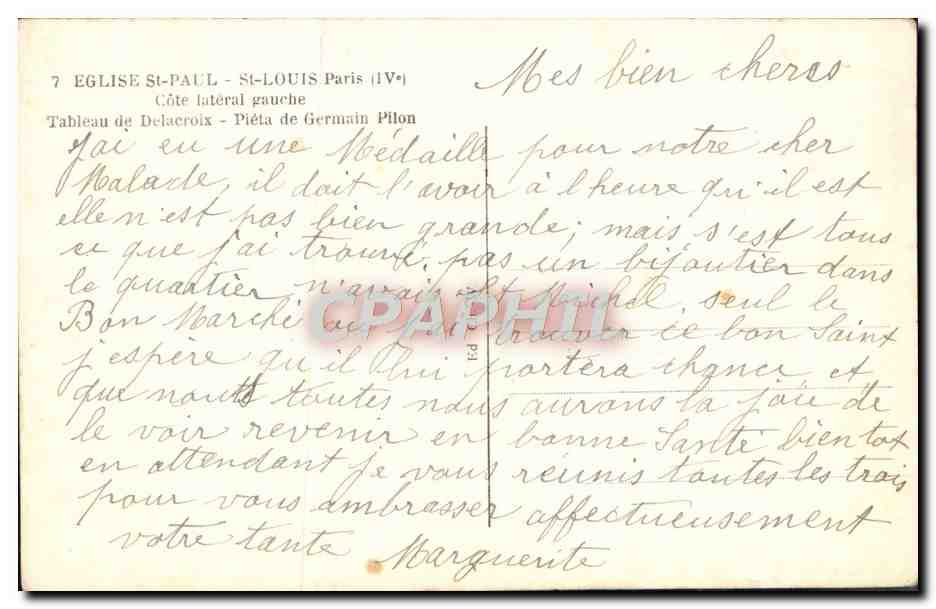 7 EGLISE St-PAUL - St-LOUIS Paris (IVe)
Côte latéral gauche
Tableau de Delacroix - Piéta de Germain Pilon
Mes bien cheres
j'ai eu une Médaille pour notre cher
Malade, il doit l'avoir à l'heure qu'il est
elle n'est pas bien grande; mais s'est tous
ce que j'ai trouvé, pas un bijoutier dans
le quartier n'avais St Michel, seul le
Bon Marché ou j'ai trouver ce bon Saint
j'espère qu'il lui portera chance et
que nous toutes nous aurons la joie de
le voir revenir en bonne Santé bientot
en attendant je vous réunis toutes les trois
pour vous ambrasser affectueusement
votre tante Marguerite
CPAPHIL
Ed